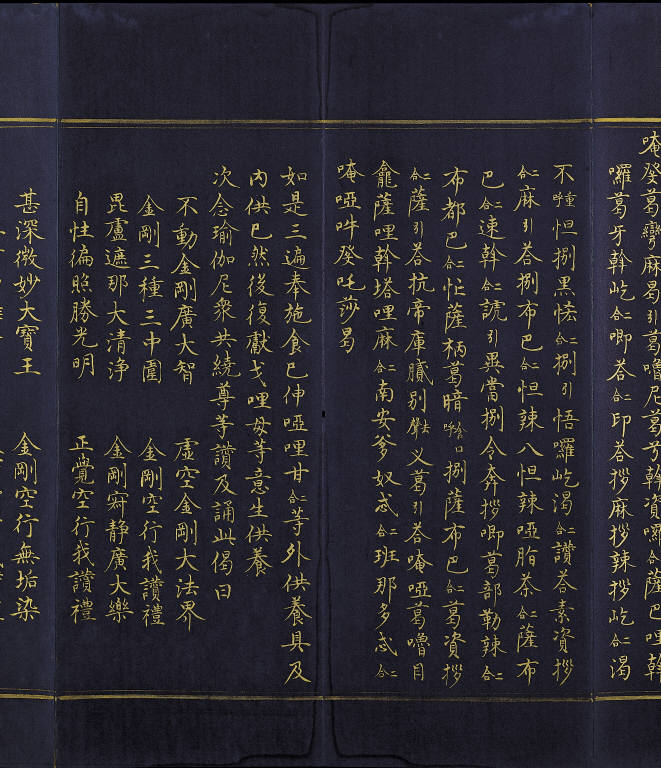 唵癹葛彎麻曷引葛嚕尼葛兮斡資囉合薩巴哩斡
囉葛牙斡屹合二唧荅合二印荅拶麻拶辣拶屹合二渴
不重呼怛捌黑合二捌引悟囉屹渴合二讚荅素資拶
合二麻引荅捌布巴合二怛辣八怛辣啞脂茶合二薩布
巴合二速斡合二諕引異當捌令奔拶唧葛部勒辣合二
布都巴合二忙薩柄葛暗捌薩布巴合二葛資拶
合二薩引荅抗帝庫膩别去聲义葛引荅唵啞葛嚕目
龕薩哩斡塔哩麻合二南安爹奴忒合二班那多忒合二
唵啞吽癹吒莎曷
如是三遍奉施食巳伸啞哩甘合二等外供養具及
內供巳然後復獻戈哩母等意生供養
次念瑜伽尼衆共繞尊等讚及誦此偈曰
不動金剛廣大智 虛空金剛大法界
金剛三種三中圍 金剛空行我讚禮
毘盧遮那大清淨 金剛寂静廣大樂
自性徧照勝光明 正覺空行我讚禮
甚深微妙大寶王 金剛空行無垢染